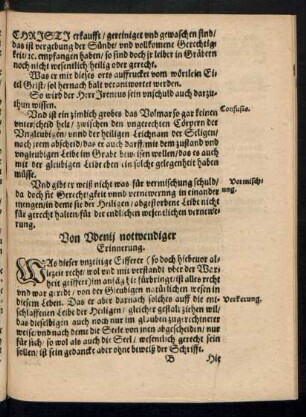 CHRISTI erkaufft / gereiniget vnd gewaschen sind /
das ist vergebung der Sünde / vnd vollkomene Gerechtig-
keit / ꝛc. empfangen haben / so sind doch jr leiber in Gräbern
noch nicht wesentlich heilig oder gerecht.
Was er mit dieses orts auffrucket vom wörtlein Ei-
tel Geist / sol hernach bald verantwortet werden.
So wird der Herr Ireneus sein vnschuld auch darzu-
thun wissen.
Vnd ist ein zimlich grobes das Volmar so gar keinen
vnterscheid helt / zwischen den vngerechten Cörpern der
Vngleubigen / vnnd der heiligen Leichnam der Seligen /
nach jrem abscheiden / das er auch darff mit dem zustand vnd
vngleubigen Leibe im Grabe beweisen wollen / das es auch
mit der gleubigen Leiber eben ein solche gelegenheit haben
müsse.
Confusio.
Vnd gibt er weiß nicht was für vermischung schuld /
da doch sie Gerechtigkeit vnnd vernewerung in einander
mengen / in deme sie der Heiligen / abgestorbene Leibe nicht
für gerecht halten / für der endlichen wesentlichen vernewe-
rung.
Vermisch-
ung.
Von Vdenij notwendiger
Erinnerung.
WAs dieser vnzeitige Eifferer (so doch hiebeuor al-
lezeit recht / wol vnd mit verstandt vber der War-
heit geiffert) im anfang fürbringt / ist alles recht
vnd war geredt / von der Gleubigen natürlichen wesen in
diesem Leben. Das er aber darnach solches auff die ent-
schlaffenen Leibe der Heiligen / gleicher gestalt ziehen wil /
das dieselbigen auch noch nur im glauben zugerechneter
weise / vnd nach deme die Seele von jnen abgescheiden / nur
für sich / so wol als auch die Seel / wesentlich gerecht sein
sollen / ist sein gedancke aber ohne beweiß der Schrifft.
Verkerung.
B
Hie